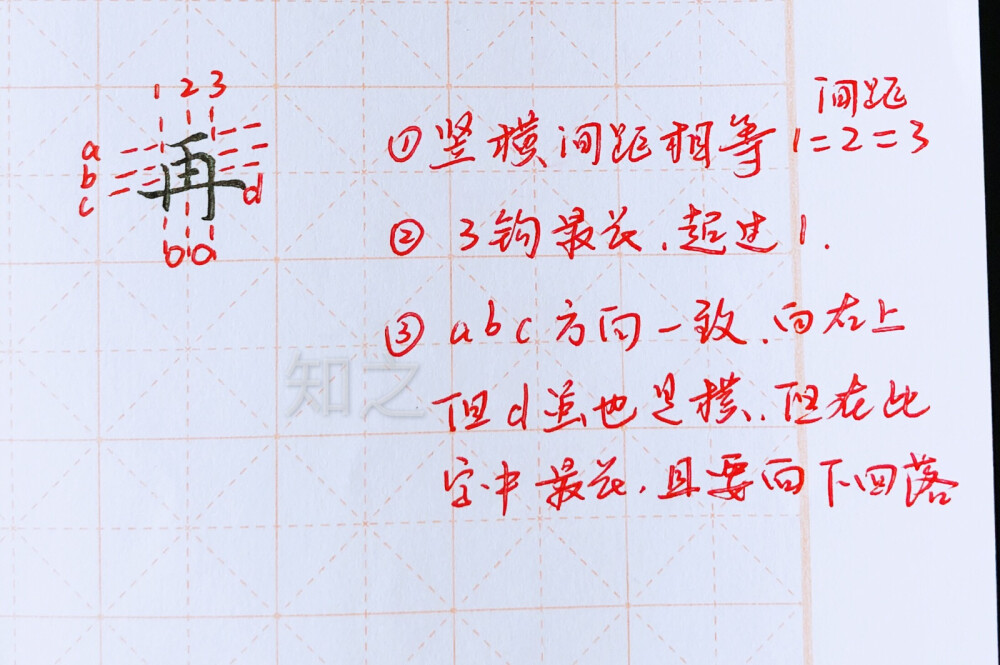 1 2 3
a
b
c
再
d
b a
间距
①竖横间距相等 1=2=3
② 3钩最长,超过1.
③ abc方向一致,向右上
但d虽也是横,但在此
字中最长,且要向下回落
知之